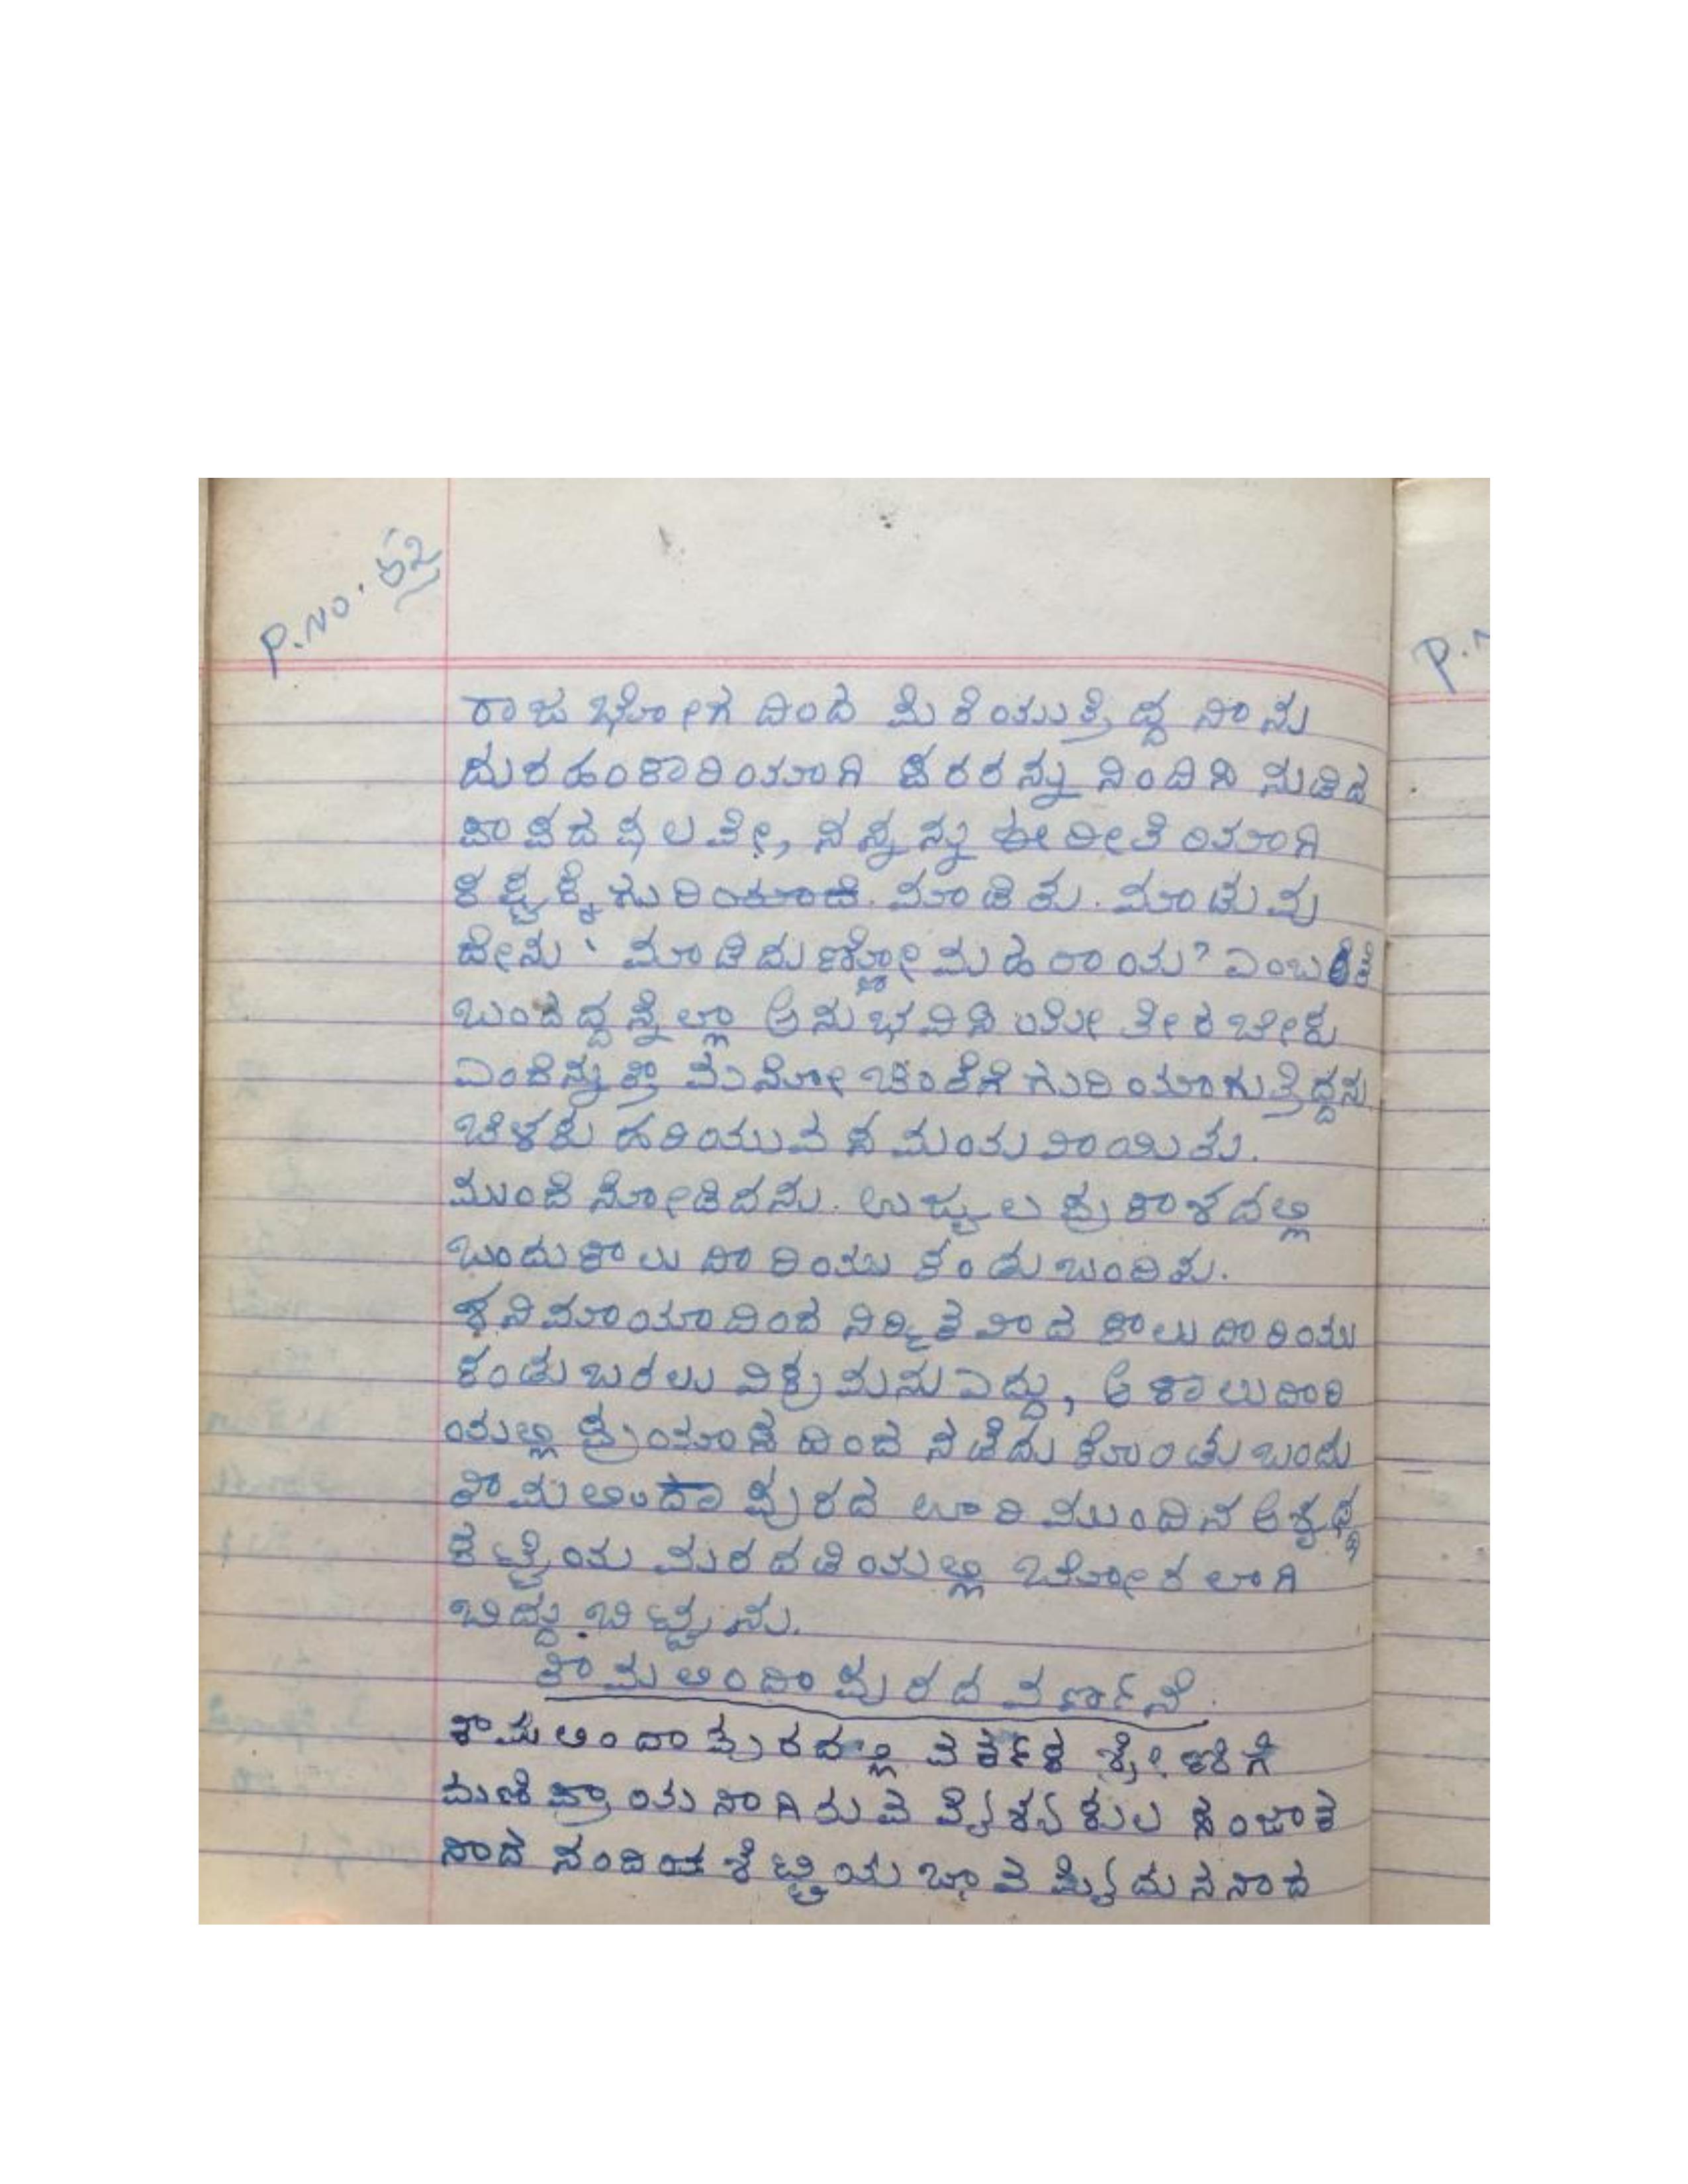 P.No. ೬೨
P.N
ರಾಜ ಭೋಗ ದಿಂದ ಮೆರೆಯುತ್ತಿದ್ದ ನಾನು
ದುರಹಂಕಾರಿಯಾಗಿ ಪರರನ್ನು ನಿಂದಿಸಿ ನುಡಿದ
ಪಾಪದ ಫಲವೇ, ನನ್ನನ್ನು ಈ ರೀತಿಯಾಗಿ
ಕಷ್ಟಕ್ಕೆ ಗುರಿ ಮಾಡಿತು. ಮಾಡುವು
ದೇನು ' ಮಾಡಿದುಣ್ಣೋ ಮಹರಾಯ' ಎಂಬಂತೆ
ಬಂದದ್ದನ್ನೆಲ್ಲಾ ಅನುಭವಿಸಿಯೇ ತೀರಬೇಕು
ಎಂದೆನ್ನುತ್ತಾ ಮನೋ ಚಿಂತೆಗೆ ಗುರಿಯಾಗುತ್ತಿದ್ದನು
ಬೆಳಕು ಹರಿಯುವ ಸಮಯವಾಯಿತು.
ಮುಂದೆ ನೋಡಿದನು. ಉಜ್ವಲ ಪ್ರಕಾಶದಲ್ಲಿ
ಒಂದು ಕಾಲು ದಾರಿಯು ಕಂಡು ಬಂದಿತು.
ಶನಿಮಾಯಾದಿಂದ ನಿರ್ಮಿತವಾದ ಕಾಲು ದಾರಿಯು
ಕಂಡು ಬರಲು ವಿಕ್ರಮನು ಎದ್ದು, ಆ ಕಾಲುದಾರಿ
ಯಲ್ಲಿ ಪ್ರಯಾಸದಿಂದ ನಡೆದು ಕೊಂಡು ಬಂದು
ತಾಮಲಿಂದಾ ಪುರದ ಊರಿ ಮುಂದಿನ ಅಶ್ವಥ್ಥ
ಕಟ್ಟೆಯ ಮರದಡಿಯಲ್ಲಿ ಬೋರಲಾಗಿ
ಬಿದ್ದು ಬಿಟ್ಟನು.
ತಾಮಲಿಂದಾ ಪುರದ ವರ್ಣನೆ
ತಾಮಲಿಂದಾ ಪುರದಲ್ಲಿ ವರ್ತಕ ಶ್ರೇಣಿಗೆ
ಮಣಿ ಪ್ರಾಯನಾಗಿರುವ ವೈಶ್ಯ ಕುಲ ಸಂಜಾತ
ನಾದ ನಂದಿ ಶೆಟ್ಟಿಯ ಬಾವ ಮೈದುನನಾದ